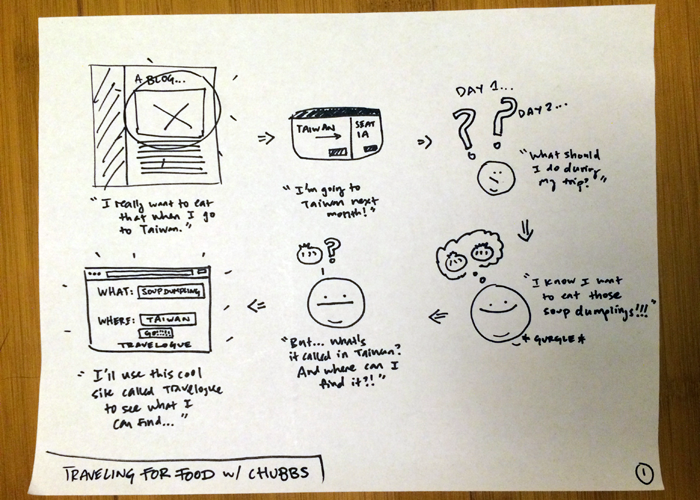 A BLOG...
"I really want to eat
that when I go
to Taiwan."
TAIWAN
SEAT
1A
"I'm going to
Taiwan next
month!"
DAY 1...
DAY 2...
? ?
"What should
I do during
my trip?"
"I know I want
to eat those
soup dumplings!!!"
*GURGLE*
?
"But... what's
it called in Taiwan?
And where can I
find it?!"
WHAT: SOUP DUMPLING
WHERE: TAIWAN
GO!!!!
TRAVELOGUE
"I'll use this cool
site called Travelogue
to see what I
can find..."
TRAVELING FOR FOOD w/ CHUBBS
1